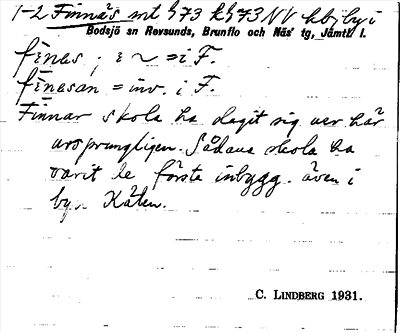 1-2 Finnäs mt 473 kh 73 NV kbj by i
Bodsjö sn Revsunds, Brunflo och Näs' tg, Jämtl. l.
finɛs ; i ~ = i F.
finɛsan = inv. i F.
Finnar skola ha dagit sig ner här
ursprungligen. Sådana skola ha
varit de första inbygg. även i
byn Kälen.
C. LINDBERG 1931.